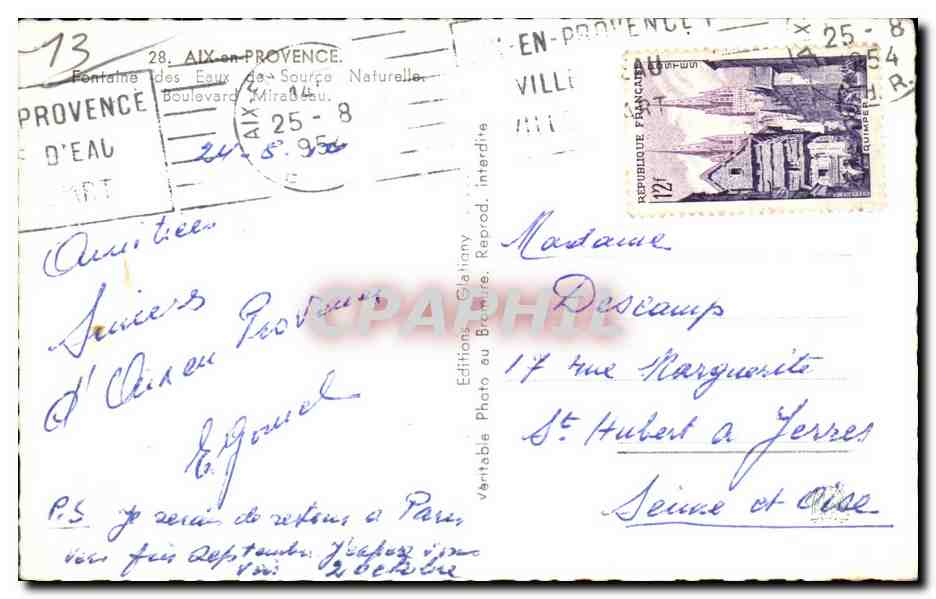 13
28. AIX-en-PROVENCE.
Fontaine des Eaux de Source Naturelle.
Boulevard Mirabeau.
PROVENCE
D'EAU
ART
AIX
14
25 - 8
954
24-8
Amitiés
Sincères
d'Aix en Provence
P.S Je serai de retour à Paris
vers fin Septembre J'espère vous
voir 2 octobre
Editions Glatigny
Véritable Photo au Bromure. Reprod. interdite
-EN-PROVENCE
VILLE
25 - 8
954
REPUBLIQUE FRANÇAISE
POSTES
12f
QUIMPER
Madame
Descamp
17 rue Marguerite
St. Hubert a Yerres
Seine et Oise
CPAPHIL